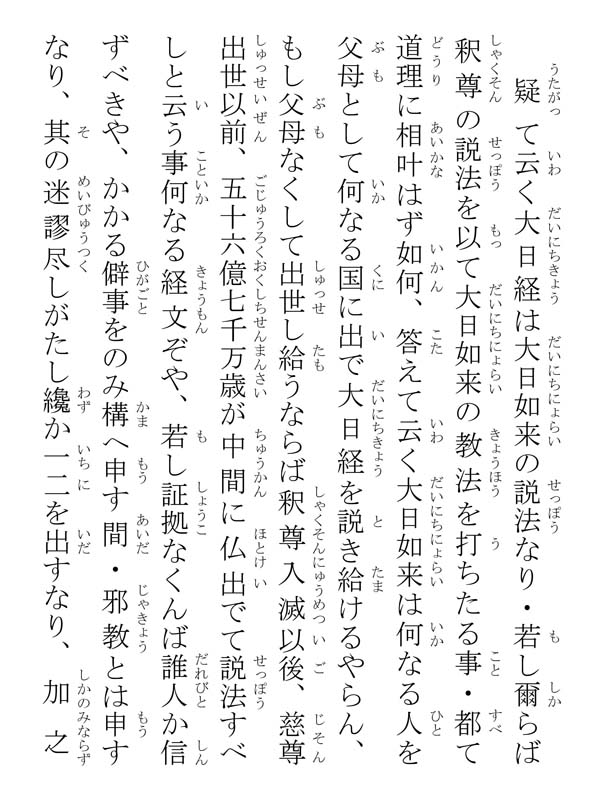 疑て云く大日経は大日如来の説法なり・若し爾らば
釈尊の説法を以て大日如来の教法を打ちたる事・都て
道理に相叶はず如何、答えて云く大日如来は何なる人を
父母として何なる国に出で大日経を説き給けるやらん、
もし父母なくして出世し給うならば釈尊入滅以後、慈尊
出世以前、五十六億七千万歳が中間に仏出でて説法すべ
しと云う事何なる経文ぞや、若し証拠なくんば誰人か信
ずべきや、かかる僻事をのみ構へ申す間・邪教とは申す
なり、其の迷謬尽しがたし纔か一二を出すなり、加之